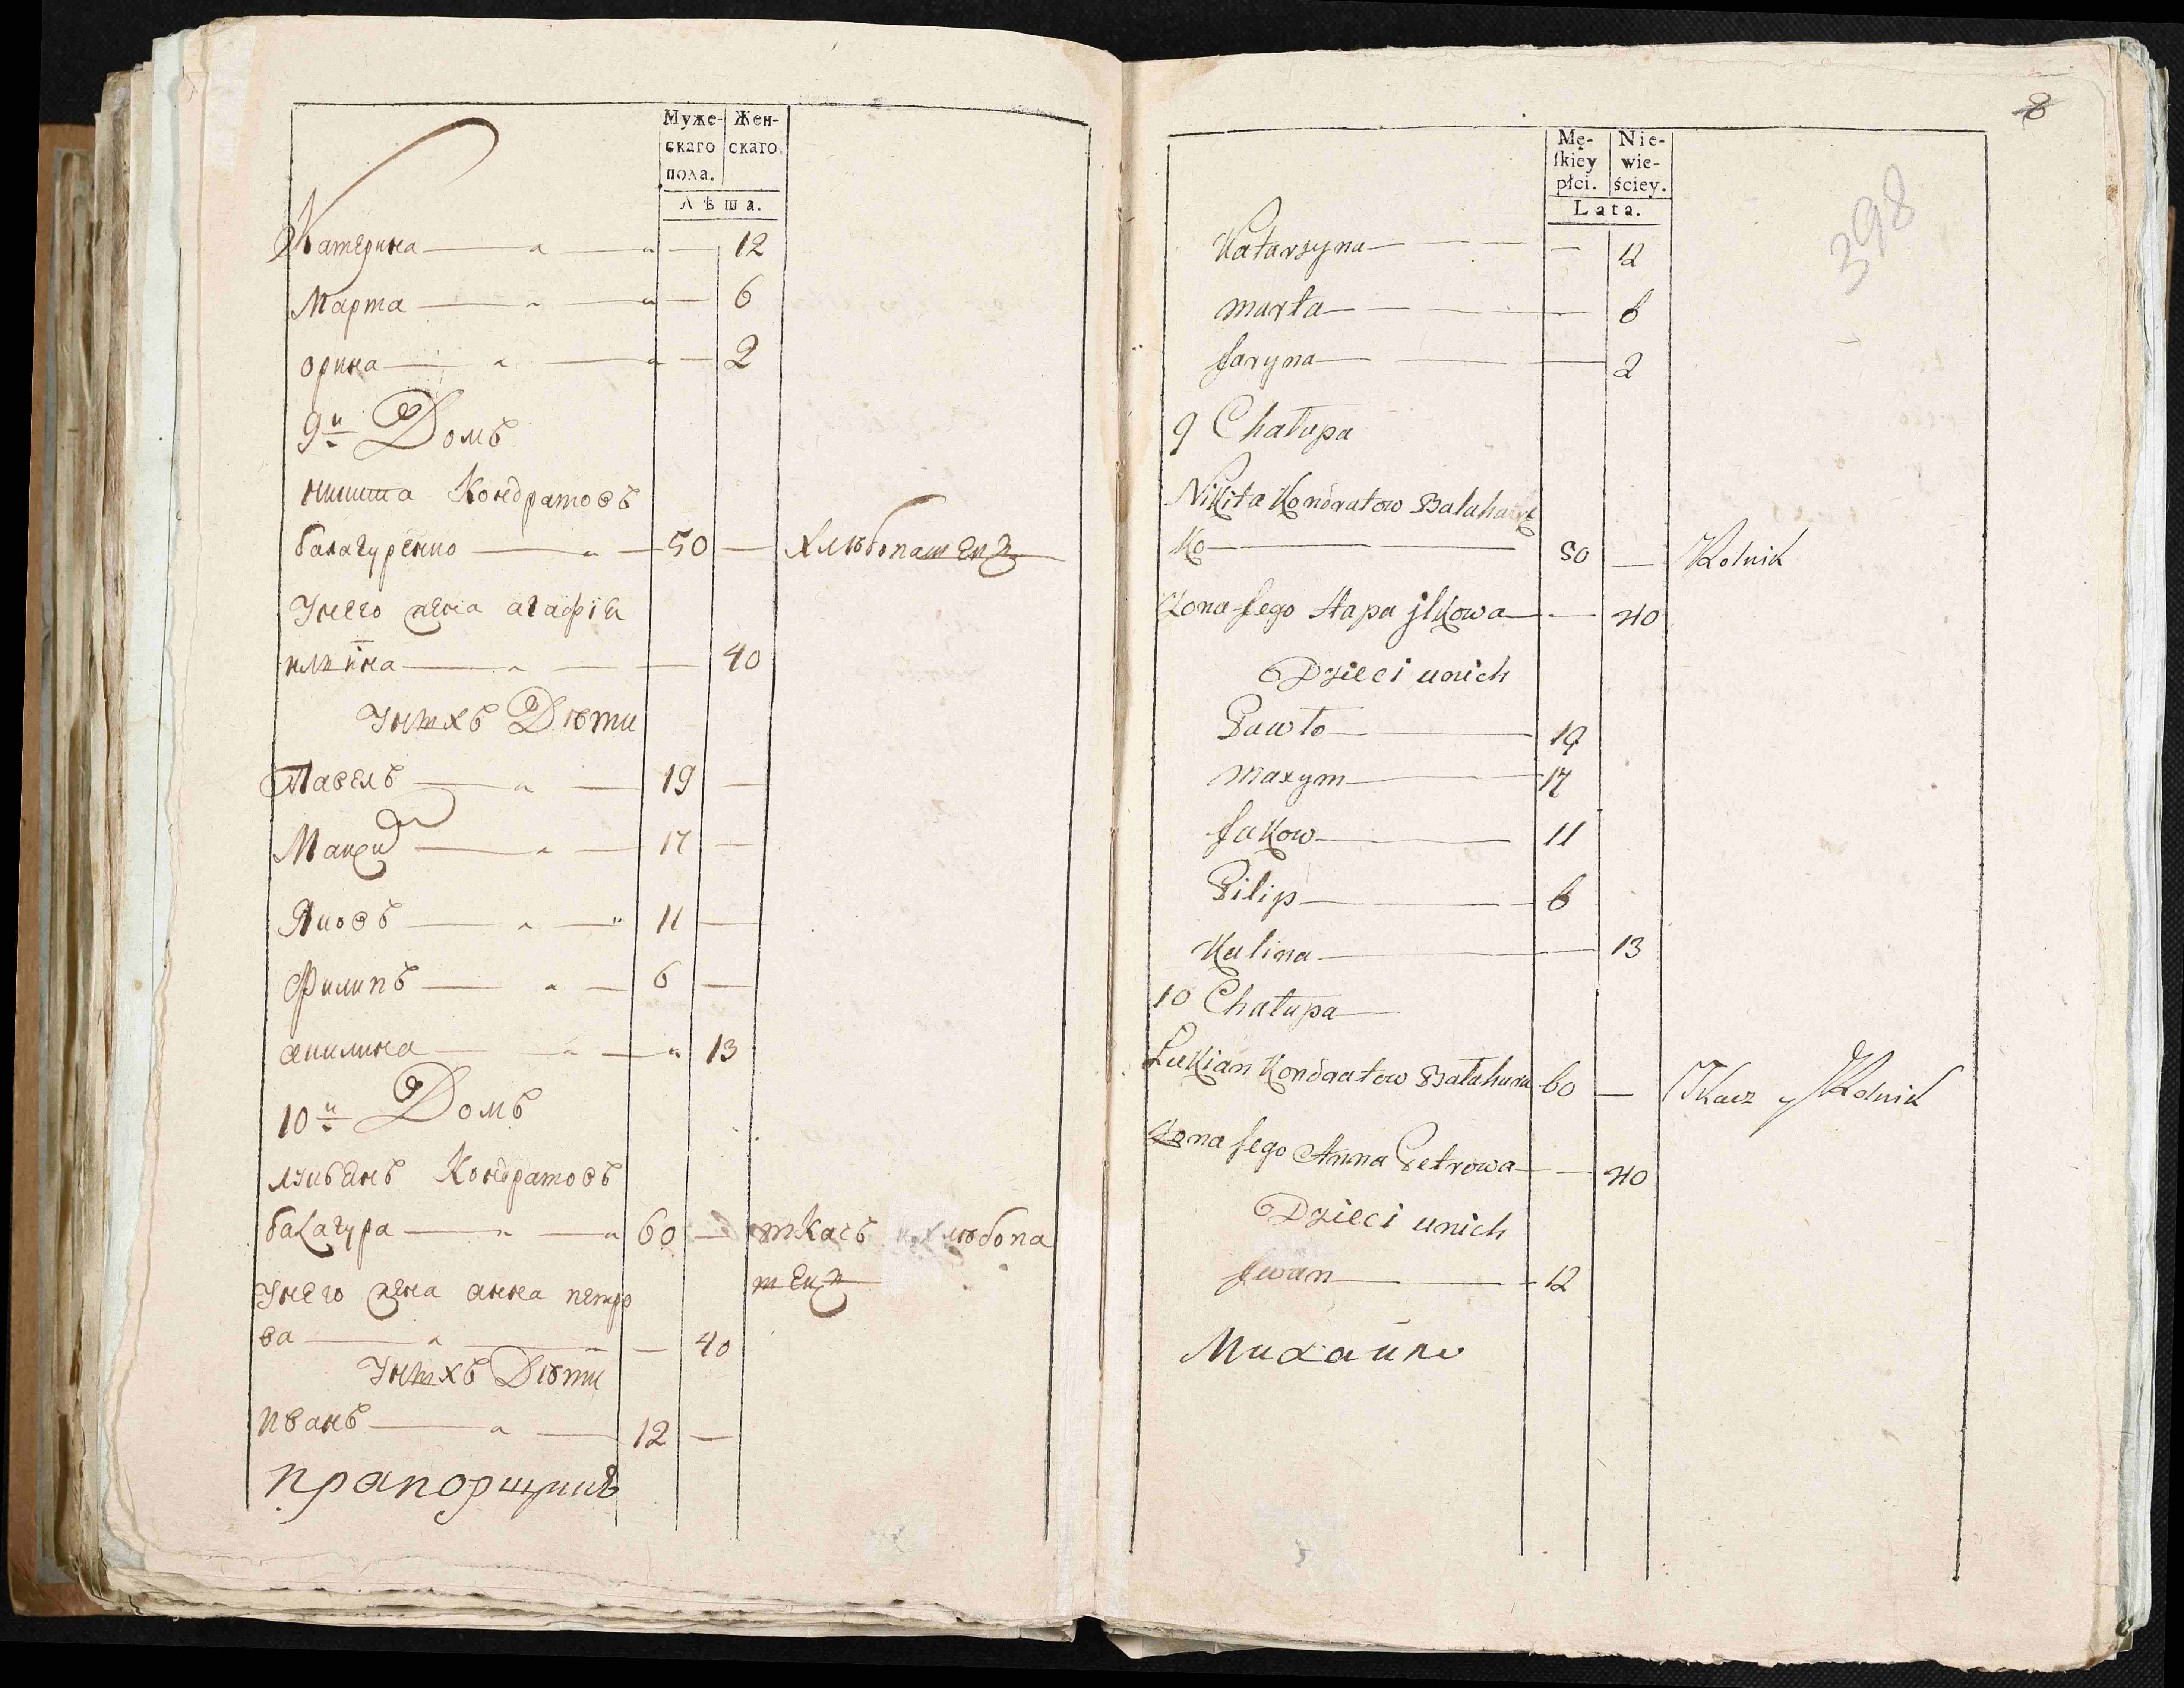 Муже-
скаго
пола.
Жен-
скаго.
Лѣта.
Катерина — 12
Марта — 6
орина — 2
9й Домъ
никита Кондратовъ
балагуренко — 50 — хлѣбопашецъ
Унего жена агафіи
илиина — 40
Унихъ Дѣти
Павелъ — 19 —
Максим — 17 —
Яковъ — 11 —
Филипъ — 6 —
акилина — 13
10й Домъ
лукианъ Кондратовъ
балагура — 60 — ткачъ и хлѣбопа
шецъ
Унего жена анна петро
ва — 40
Унихъ Дѣти
иванъ — 12 —
прапорщикъ
8
398
Mę-
ſkiey
płci.
Nie-
wie-
ściey.
Lata.
Katarzyna — 12
Marta — 6
Jaryna — 2
9 Chałupa
Nikita Kondratow Bałahuręn
Ko — 50 — Rolnik
Żona Jego Hapa jlkowa — 40
Dzieci unich
Pawło — 19
Maxym — 17
Jakow — 11
Pilip — 6
Kulina — 13
10 Chałupa
Łukian Kondratow Bałahura 60 — Tkacz y Rolnik
Żona Jego Anna Petrowa — 40
Dzieci unich
Jwan — 12
Михайло